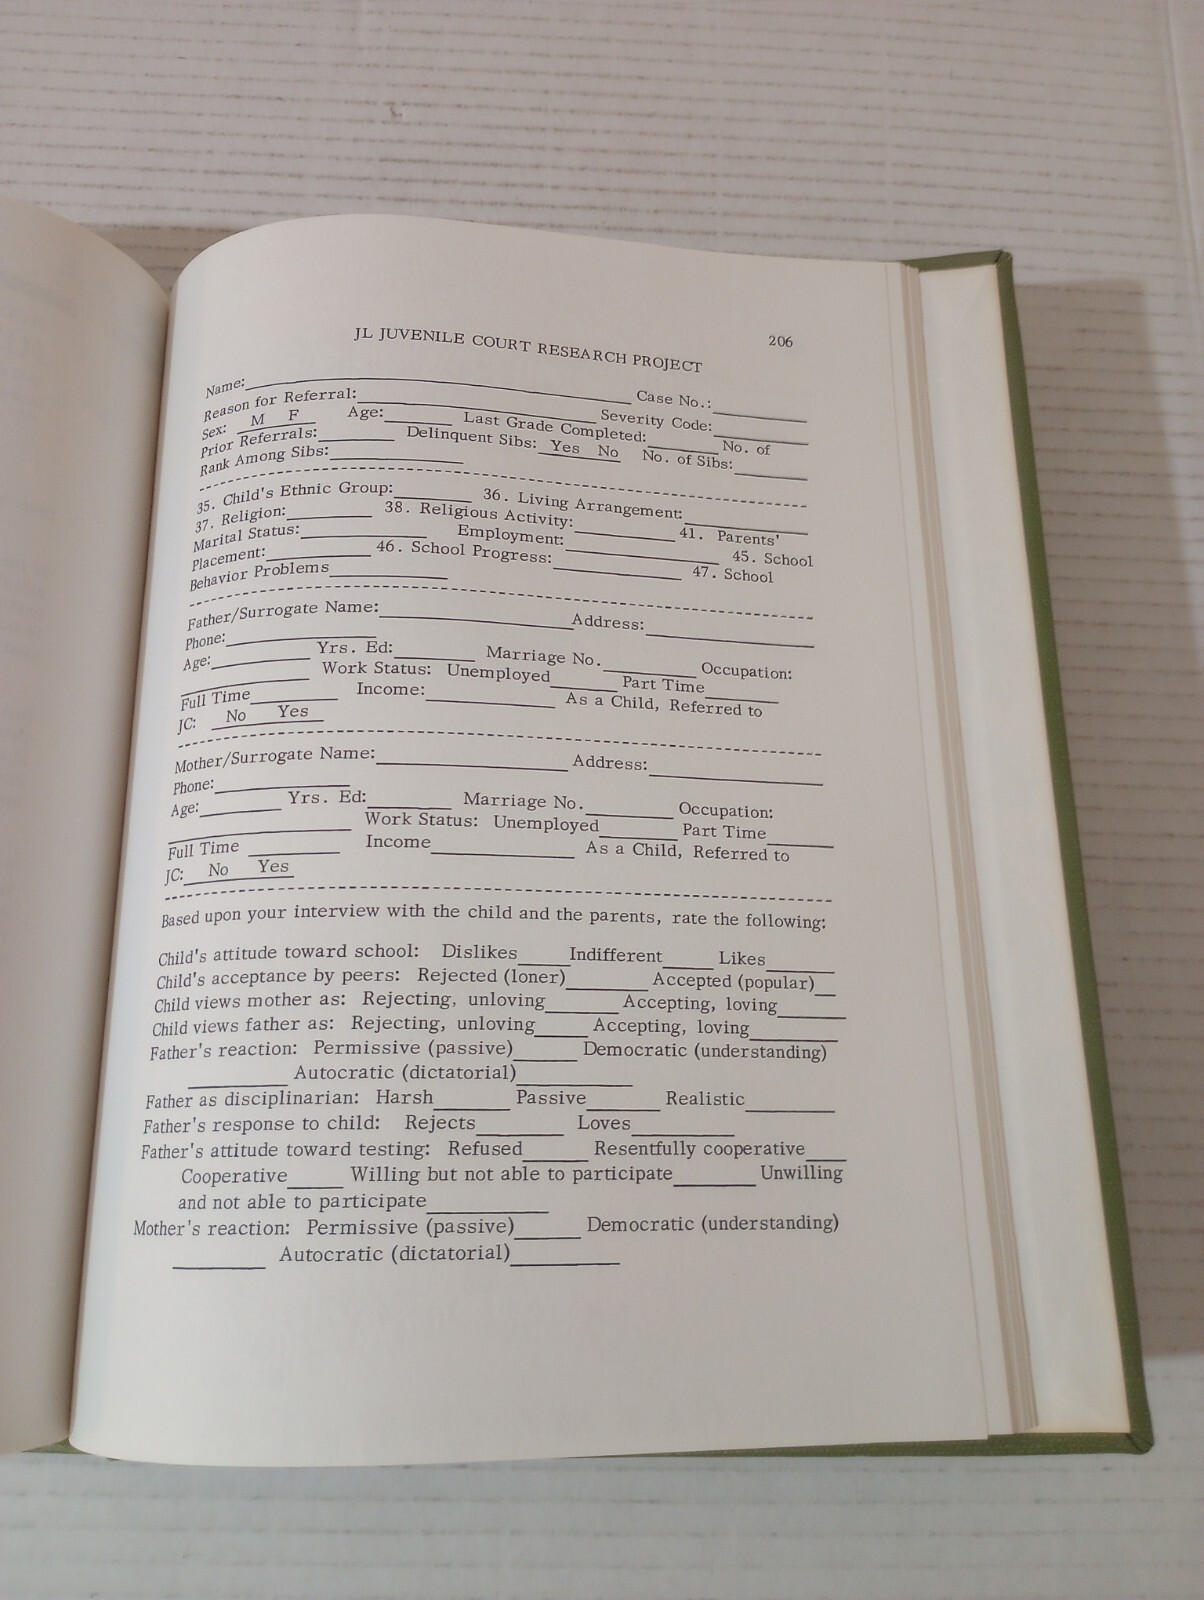 206
JL JUVENILE COURT RESEARCH PROJECT
Name:____________________ Case No.:________
Reason for Referral:____________________ Severity Code:________
Sex: M F Age:______ Last Grade Completed:______ No. of
Prior Referrals:______ Delinquent Sibs: Yes No No. of Sibs:______
Rank Among Sibs:__________
--------------------------------------------------
35. Child's Ethnic Group:______ 36. Living Arrangement:________
37. Religion:______ 38. Religious Activity:________ 41. Parents'
Marital Status:________ Employment:____________ 45. School
Placement:________ 46. School Progress:________ 47. School
Behavior Problems________
--------------------------------------------------
Father/Surrogate Name:______________Address:____________
Phone:____________
Age:________ Yrs. Ed:______ Marriage No.______ Occupation:
__________ Work Status: Unemployed______ Part Time______
Full Time ______ Income:________ As a Child, Referred to
JC: No Yes
--------------------------------------------------
Mother/Surrogate Name:______________ Address:____________
Phone:____________
Age:______ Yrs. Ed:______ Marriage No.______ Occupation:
____________ Work Status: Unemployed______ Part Time______
Full Time ______ Income________ As a Child, Referred to
JC: No Yes
--------------------------------------------------
Based upon your interview with the child and the parents, rate the following:
Child's attitude toward school: Dislikes____Indifferent____ Likes_____
Child's acceptance by peers: Rejected (loner)______ Accepted (popular)__
Child views mother as: Rejecting, unloving______ Accepting, loving_____
Child views father as: Rejecting, unloving____ Accepting, loving______
Father's reaction: Permissive (passive)_____ Democratic (understanding)
________ Autocratic (dictatorial)_________
Father as disciplinarian: Harsh______ Passive______ Realistic_______
Father's response to child: Rejects_______ Loves________
Father's attitude toward testing: Refused_____ Resentfully cooperative___
Cooperative____ Willing but not able to participate______ Unwilling
and not able to participate_________
Mother's reaction: Permissive (passive)_____ Democratic (understanding)
_______ Autocratic (dictatorial)_________